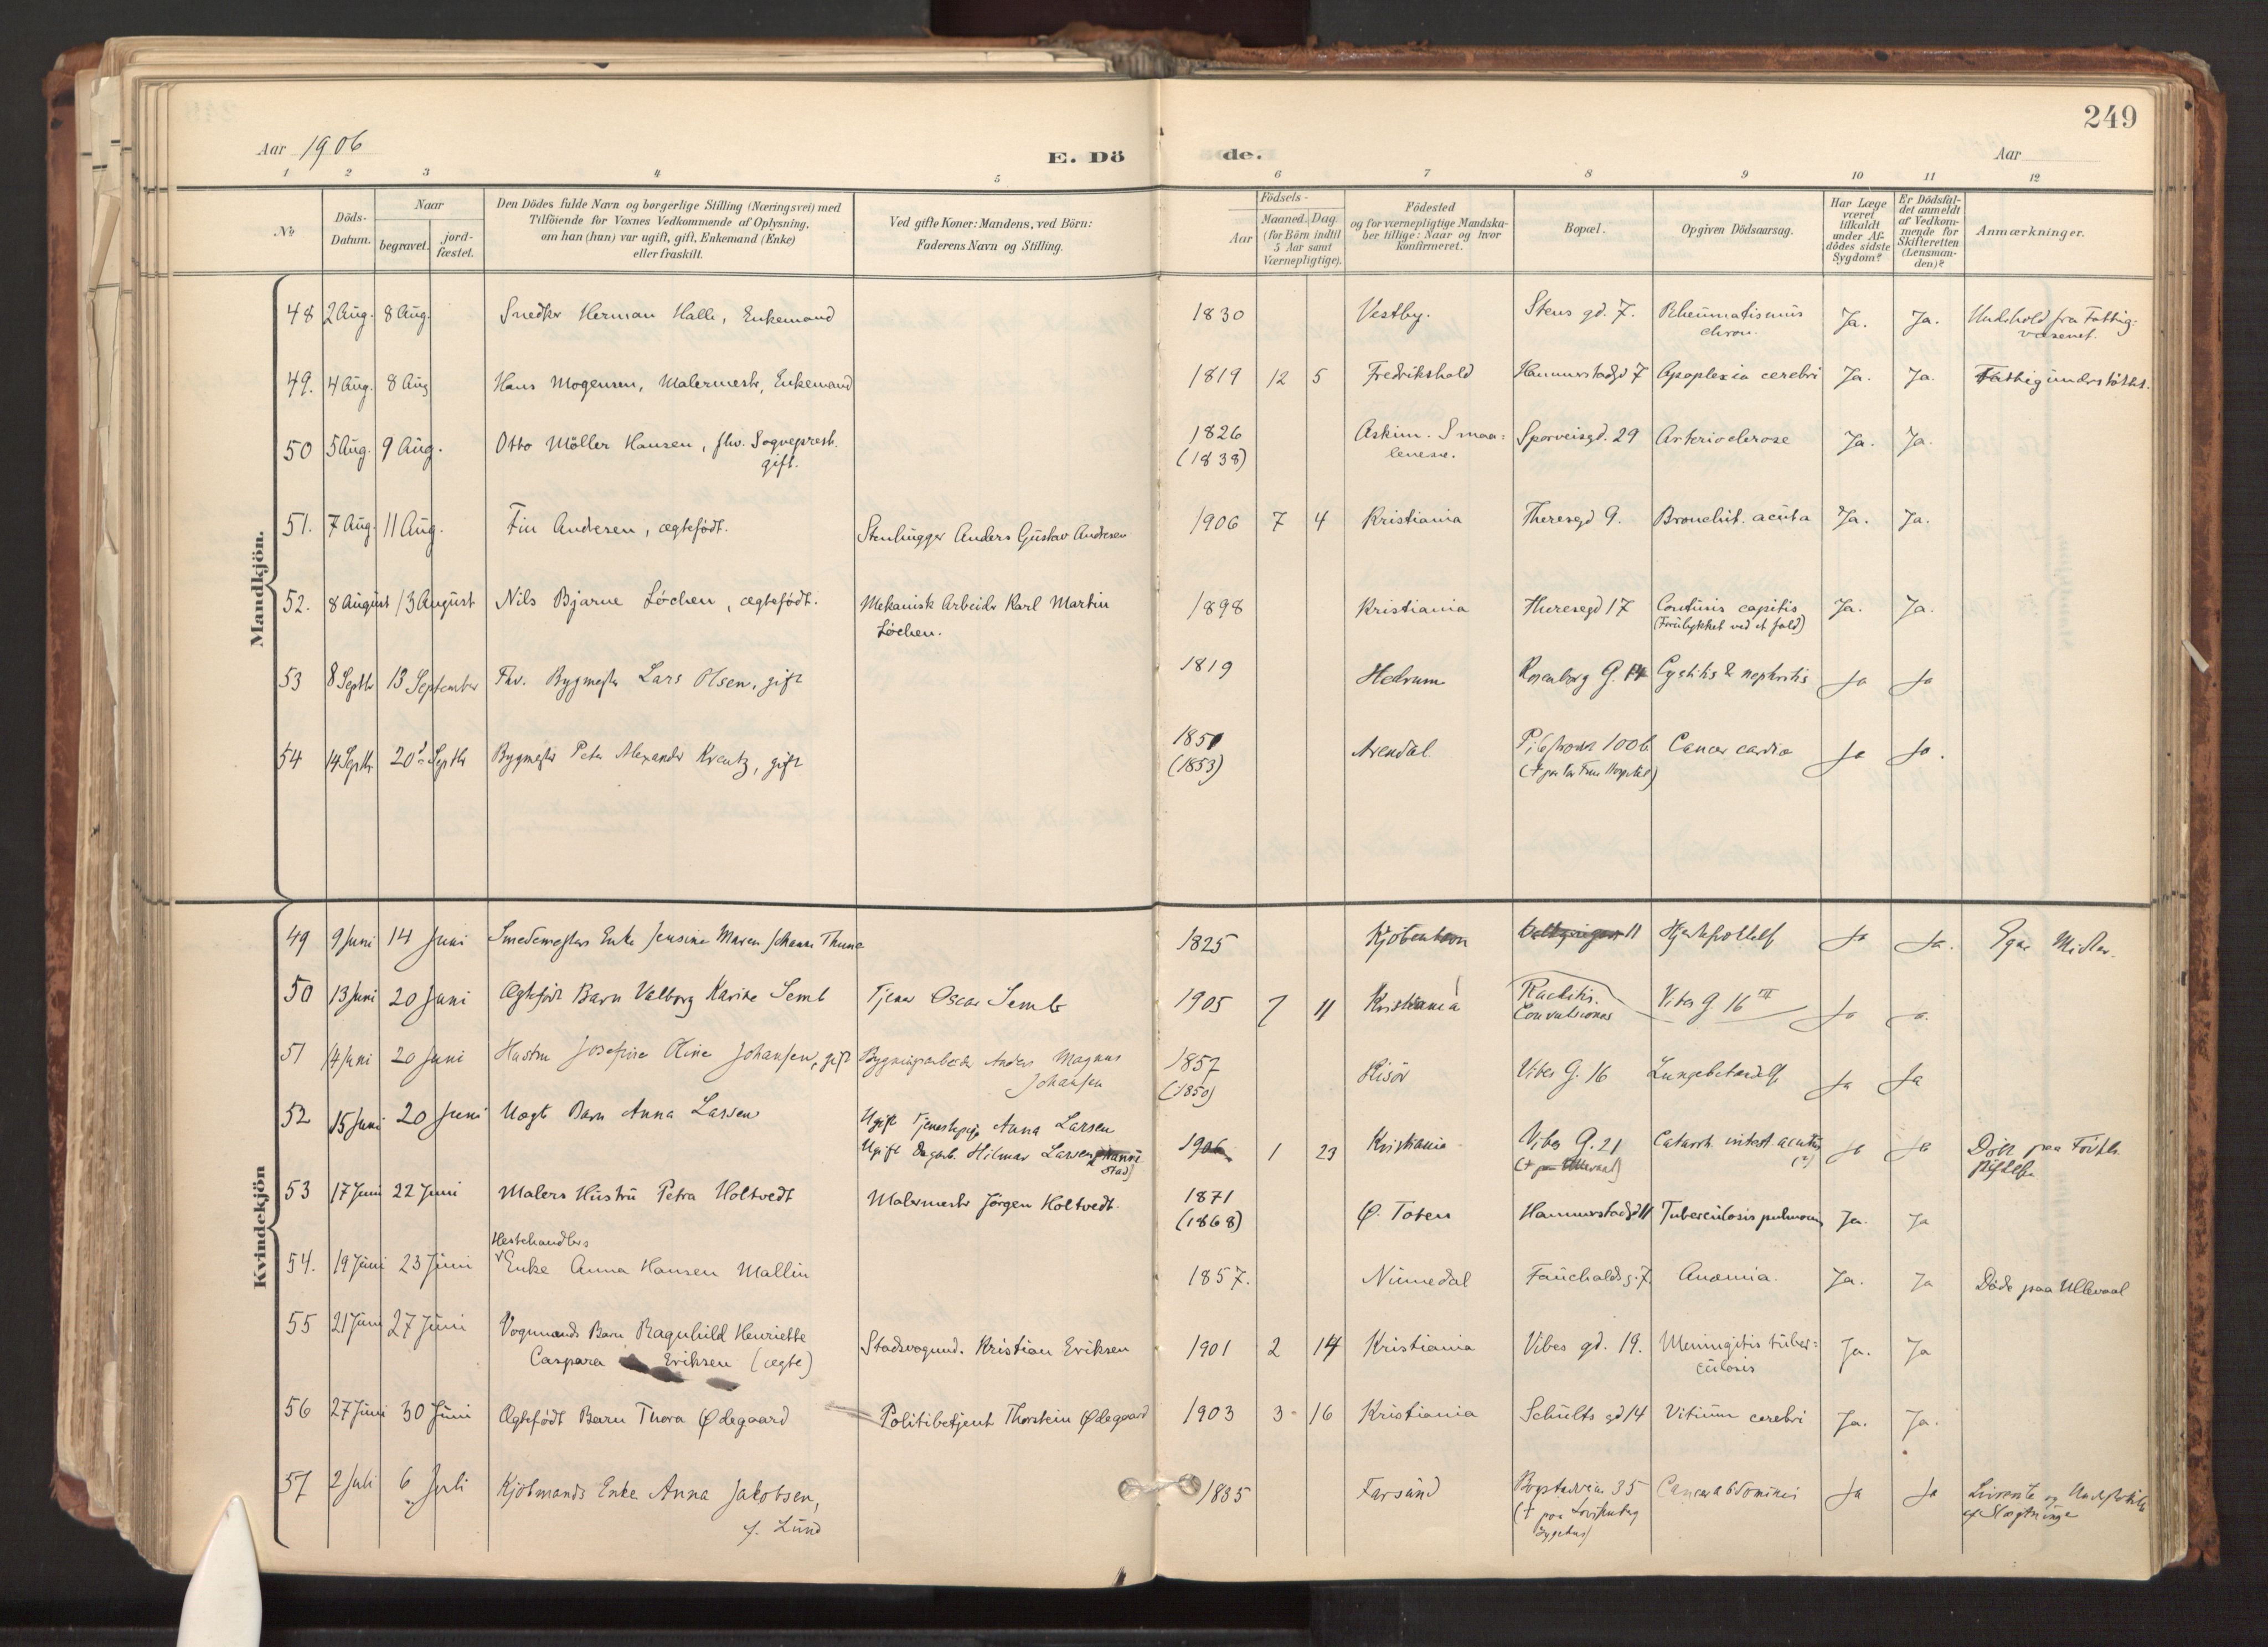 249
Aar 1906
E. Dö de.
Aar
1 2 3 4 5 6 7 8 9 10 11 12
No
Döds-Datum.
Naar
begravet.
jord-fæstet.
Den Dödes fulde Navn og borgerlige Stilling (Næringsvei) med
Tilföiende for Voxnes Vedkommende af Oplysning,
om han (hun) var ugift, gift, Enkemand (Enke)
eller fraskilt.
Ved gifte Koner: Mandens, ved Börn:
Faderens Navn og Stilling.
Födsels-
Aar
Maaned. Dag
(for Börn indtil
5 Aar samt
Værnepligtige).
Födested
og for værnepligtige Mandska-
ber tillige: Naar og hvor
konfirmeret.
Bopæl.
Opgiven Dödsaarsag.
Har Læge
været
tilkaldt
under Af-
dödes sidste
Sygdom?
Er Dödsfal-
det anmeldt
af Vedkom-
mende for
Skifteretten
(Lensman-
den)?
Anmærkninger.
Mandkjön.
48 2 Aug. 8 Aug. Snedker Herman Halle, Enkemand 1830 Vestby. Stens gd. 7. Rheumatismus Ja. Ja. Underhold fra Fattig-
chron. væsenet.
49. 4 Aug. 8 Aug Hans Mogensen, Malermestr, Enkemand 1819 12 5 Fredrikshald Hammerstadgd 7 Apoplexia cerebri Ja. Ja. Fattigunderstöttet.
50 5 Aug. 9 Aug. Otto Möller Hansen, fhv. Sogneprest. 1826 Askim. Smaa= Sporveisgd. 29 Arteriosclerose Ja. Ja.
gift. (1838) lenene.
51. 7 Aug. 11 Aug. Fin Andersen, ægtefödt. Stenhugger Anders Gustav Andresen 1906 7 4 Kristiania Theresegd 9. Bronchit. acuta Ja. Ja.
52. 8 August 13 August Nils Bjarne Löchen, ægtefödt. Mekanisk Arbeider Karl Martin 1898 Kristiania Theresegd 17 Contusis capitis Ja. Ja.
Löchen. (Forulykket ved et fald)
53 8 Septbr 13 September Fhv. Bygmester Lars Olsen, gift 1819 Hedrum Rosenborg G. 14 Cystitis & nephritis Ja Ja
54 14 Septbr 20 Septbr Bygmester Peter Alexander Kreutz, gift 1851 Arendal Pilestræde 100 b Cancer cardia Ja Ja.
(1853) († paa Vor Frues Hospital)
Kvindekjön
49 9 Juni 14 Juni Smedemesters Enke Jensine Maren Johanne Thune 1825 Kjöbenhavn 11 Ja Ja. Egne Midler.
50 13 Juni 20 Juni Ægtefödt Barn Valborg Karine Semb Tjener Oscar Semb 1905 7 11 Kristiania Rachitis. Vibes G. 16 III Ja Ja
Convulsiones
51 14 Juni 20 Juni Hustru Josefine Oline Johansen, gift Bygningsarbeider Anders Magnus 1857 Risör Vibes G. 16 Lungebetændelse Ja Ja
Johansen (1850)
52 15 Juni 20 Juni Uægte Barn Anna Larsen Ugift Tjenestepige Anna Larsen
Ugift Dagarb. Hilmar Larsen 1906 1 23 Kristiania Vibes G. 21 Catarrh intest acutus Ja Ja Död paa
stad) († paa Ullevaal) (?)
53 17 Juni 22 Juni Malers Hustru Petra Holtvedt Malermester Jörgen Holtvedt. 1871 Ø. Toten Hammerstadgd 11 Tuberculosis pulmonis Ja. Ja
(1868)
Hestehandlers
54. 19 Juni 23 Juni Enke Anna Hansen Mallin 1857. Numedal Fauchaldsg. 7 Anæmia. Ja. Ja Döde paa Ullevaal
55 21 Juni 27 Juni Vognmands Barn Ragnhild Henriette Stadsvognmd. Kristian Eriksen 1901 2 14 Kristiania Vibes gd. 19. Meningitis tuber= Ja. Ja
Caspara Eriksen (ægte) culosis
56 27 Juni 30 Juni Ægtefödt Barn Thora Ødegaard Politibetjent Thorstein Ødegaard 1903 3 16 Kristiania Schultz gd 14 Vitium cerebri Ja. Ja.
57 2 Juli 6 Juli Kjöbmands Enke Anna Jakobsen, 1835 Farsund Bogstadveien 35 Cancer abdominis Ja Ja Livrente og Understöttelse
f. Lund († paa Lovisenberg af Slægtninge
Sygehus)